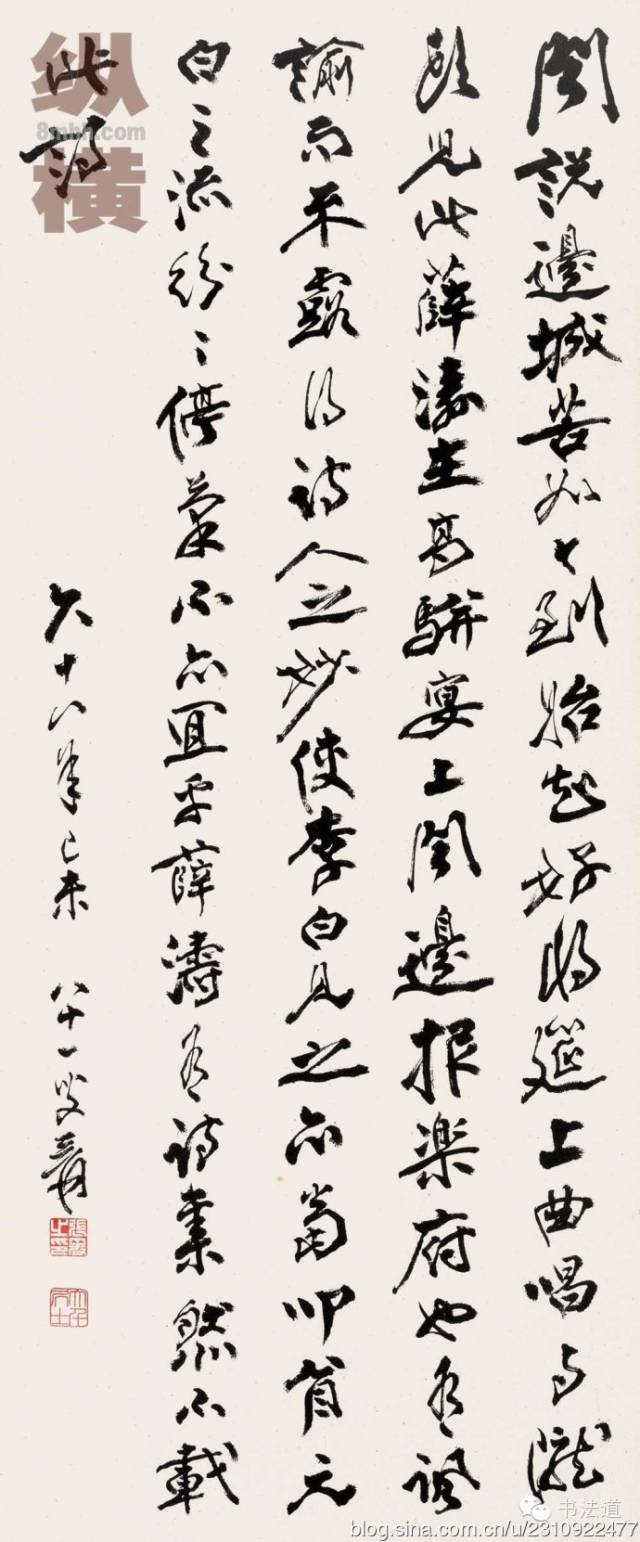 聞説邊城苦如今到始知好將筵上曲唱与隴
頭兒此薛濤在高駢宴上聞邊報楽府也有諷
諭而不露得詩人之妙使李白見之亦當叩首元
白之流紛〻停筆不亦宜乎薛濤有詩集然不載
此詩
六十八年己未 八十一叟爰
張爰之印
大千居士
纵横
8mhh.com
书法道
blog.sina.com.cn/u/2310922477